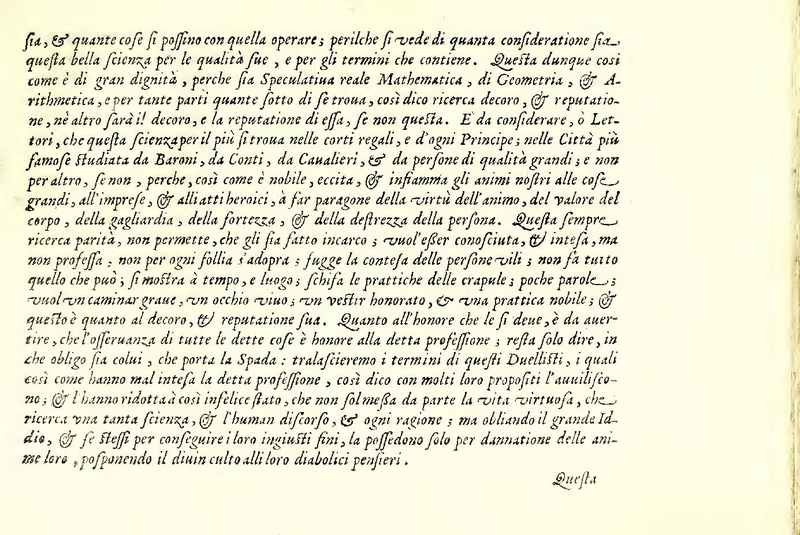 ſia, & quante coſe ſi poſſino con quella operare; perilche ſi vede di quanta conſideratione ſia
queſta bella ſcienza per le qualità ſue , e per gli termini che contiene. Queſta dunque cosi
come è di gran dignità , perche ſia Speculatiua reale Mathematica , di Geometria , & A-
rithmetica, e per tante parti quante ſotto di ſe troua, così dico ricerca decoro, & reputatio-
ne, nè altro farà il decoro, e la reputatione di eſſa, ſe non queſta. E da conſiderare, ò Let-
tori, che queſta ſcienza per il più ſi troua nelle corti regali, e d'ogni Principe; nelle Città più
famoſe ſtudiata da Baroni, da Conti, da Caualieri, & da perſone di qualità grandi; e non
per altro, ſe non, perche, così come è nobile, eccita, & infiamma gli animi noſtri alle coſe
grandi, all'impreſe, & alli atti heroici, à far paragone della virtù dell'animo, del valore del
corpo , della gagliardia , della fortezza , & della deſtrezza della perſona. Queſta ſempre
ricerca parità, non permette, che gli ſia fatto incarco; vuol'eßer conoſciuta, & inteſa, ma
non profeſſa; non per ogni follia s'adopra; fugge la conteſa delle perſone vili; non fa tutto
quello che può; ſi moſtra à tempo, e luogo; ſchifa le prattiche delle crapule; poche parole;
vuol vn caminar graue, vn occhio viuo; vn veſtir honorato, & vna prattica nobile; &
queſto è quanto al decoro, & reputatione ſua. Quanto all'honore che le ſi deue, è da auer-
tire, che l'oſſeruanza di tutte le dette coſe è honore alla detta profeſſione; reſta ſolo dire, in
che obligo ſia colui , che porta la Spada : tralaſcieremo i termini di queſti Duelliſti, i quali
così come hanno mal inteſa la detta profeſſione , così dico con molti loro propoſiti l'auuiliſco-
no; & l'hanno ridotta à così infelice ſtato, che non ſol meßa da parte la vita virtuoſa, che
ricerca vna tanta ſcienza, & l'human diſcorſo, & ogni ragione; ma obliando il grande Id-
dio, & ſe ſteſſi per conſeguire i loro ingiuſti fini, la poſſedono ſolo per dannatione delle ani-
me loro , poſponendo il diuin culto alli loro diabolici penſieri .
Queſta